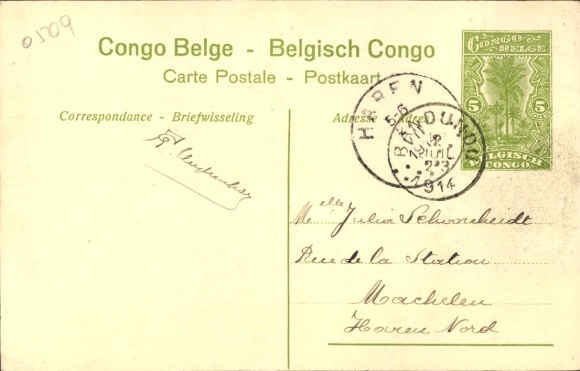 0509
Congo Belge - Belgisch Congo
Carte Postale - Postkaart
Correspondance - Briefwisseling
Adresse - Adres
CONGO BELGE
5 5
BELGISCH CONGO
HAREN
5-6
1914
BANDUNDU
2
JUIL
Melle Julia Schoonscheidt
Rue de la Station
Machelen
Haren Nord